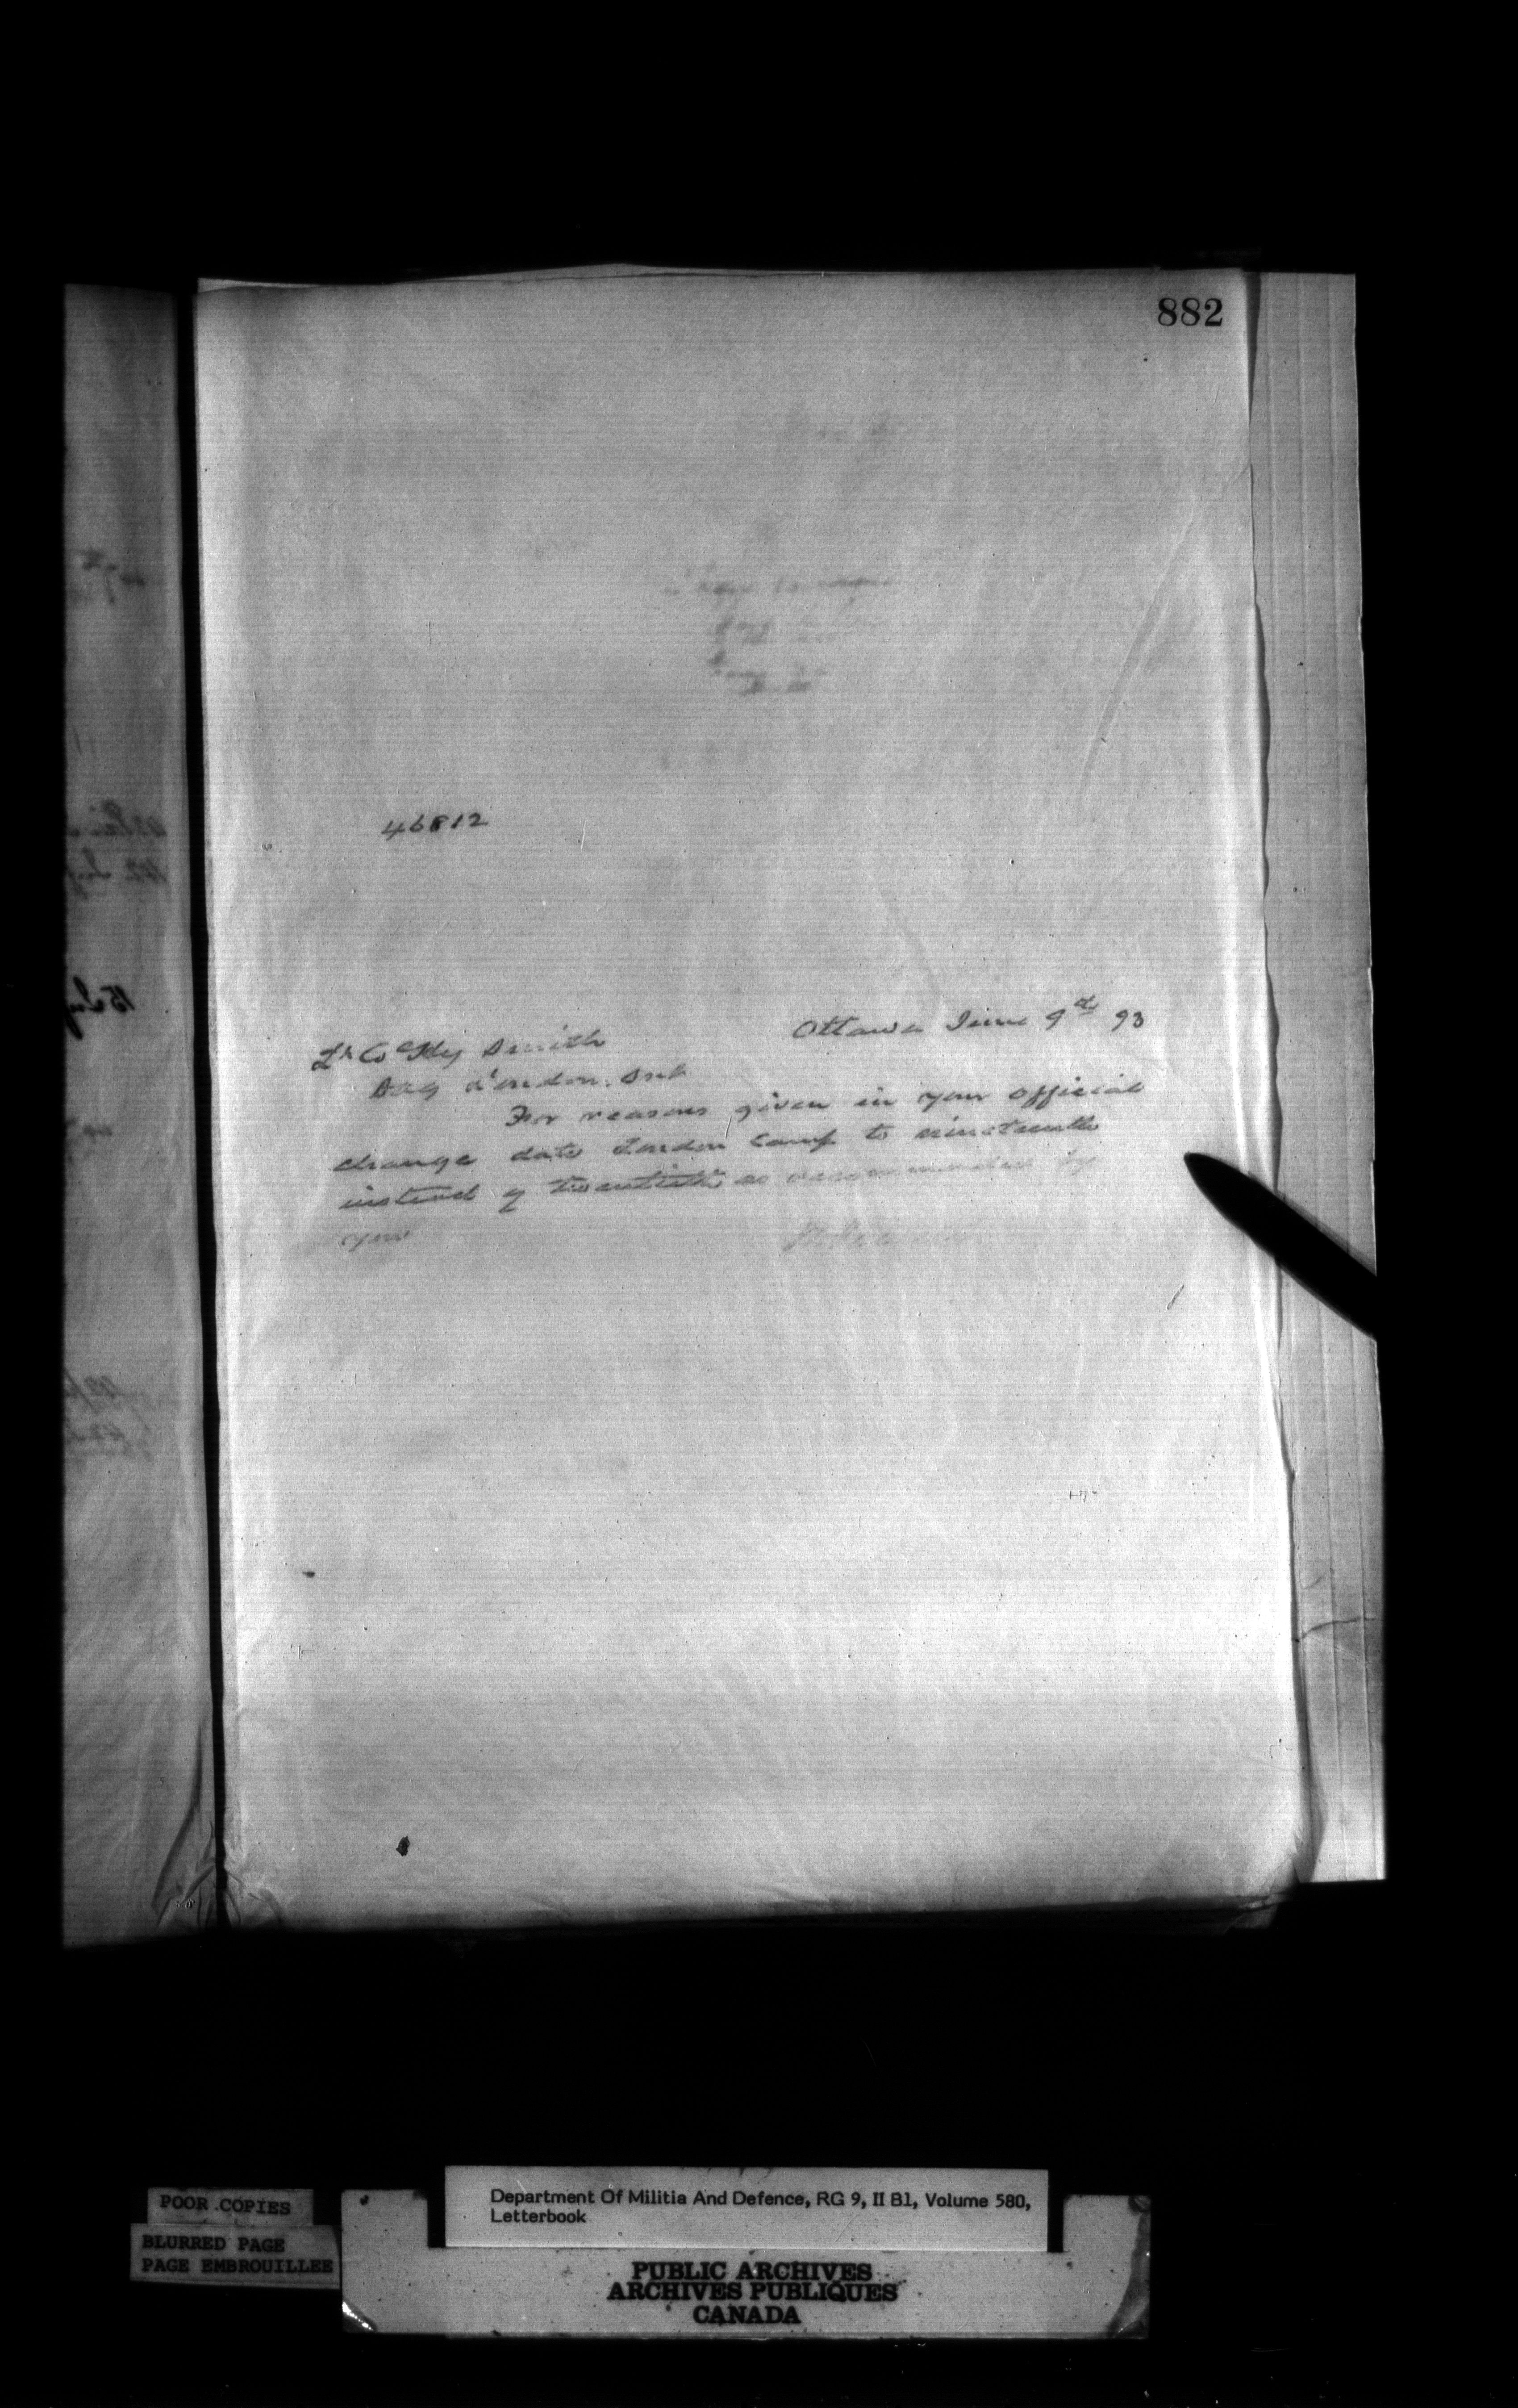 882
46812
Ottawa June 9th 93
Lt Col Hy Smith
DAG London. Ont
For reasons given in your official
change date London Camp to nineteenth
instead of twentieth as recommended by
you
POOR COPIES
BLURRED PAGE
PAGE EMBROUILLEE
Department Of Militia And Defence, RG 9, II B1, Volume 580,
Letterbook
PUBLIC ARCHIVES
ARCHIVES PUBLIQUES
CANADA